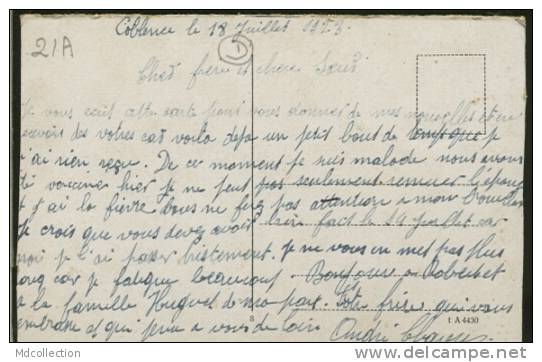 Coblence le 18 Juillet 1923.
21A
1
Cher frere et chere Soeur
Je vous ecrit cette carte pour vous donner de mes nouvelles et en
recevoir des votres car voila deja un petit bout de temps que je
n'ai rien reçu. De ce moment je suis malade nous avons
été vacciner hier je ne peut pas seulement remuer l'épaule
et j'ai la fievre vous ne ferez pas attention a mon brouillon
Je crois que vous devez avoir bien fait le 14 juillet car
moi je l'ai passer tristement. Je ne vous en met pas plus
long car je fatigue beaucoup. Bonjour a
a la famille Huguet de ma part. Votre frere qui vous
embrasse et qui pense a vous de loin
André
8
t A 4430
Mdcollection
www.delcampe.net